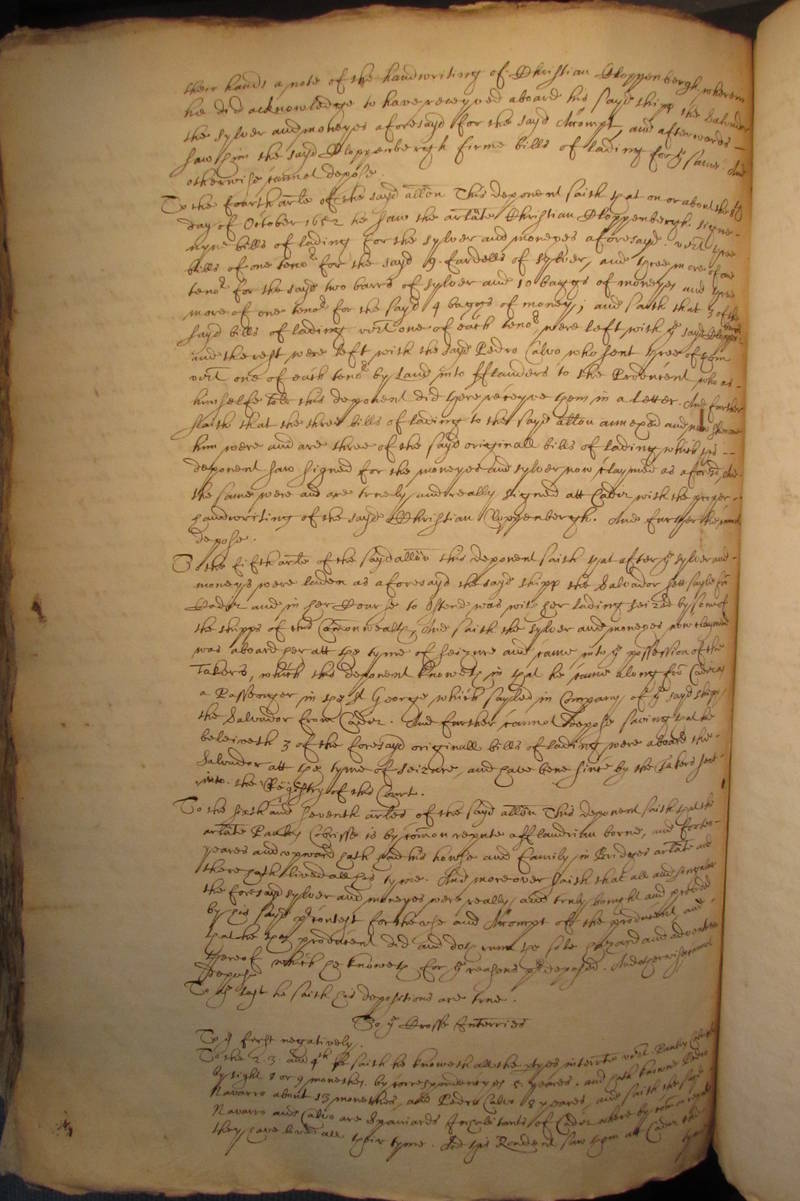 their hands a note of the handwriting of Christian Cloppenbergh, wherein
he did acknowledge to have received aboard his sayd shipp the Salvador
the sylver and moneyes aforesayd for the sayd Accompt, and afterwards
saw him the sayd Cloppenbergh firme bills of lading for ye same. And
otherwise cannot depose.
To the fourth arle of the sayd allon This deponent saith that on or about the
day of October 1652 he saw the arlate Christian Cloppenbergh signe
nyne bills of lading for the sylver and moneyes aforesayd vizt three
bills of one tenor for the sayd 9. fardells of sylver, and three more of one
tenor for the sayd two barrs of sylver and 10 baggs of moneyes and three
more of one tenor for the sayd 4 baggs of money; and saith that 3 of the
sayd bills of lading vizt one of each tenor were left with ye sayd
and the rest were left with the sayd Pedro Calvo who sent three of them
vizt one of each tenor by land into fflanders to the Producent who as
himselfe told this deponent did there receyve them in a letter. And further
saith that the three bills of lading to the sayd allon annexed and now showne
him were and are three of the sayd originall bills of lading which this
deponent saw signed for the moneyes and sylver now claymed as aforesd, And
the same were and are truely and really signed att Cadiz with the proper
handwriting of the sayd Christian Cloppenbergh. And further cannot
depose.
To the fifth arle of the sayd allon this deponent saith that after ye sylver and
moneys were laden as aforesayd the sayd shipp the Salvador sett sayle from
Cadiz and in her Course to Ostend was with her lading seized by some of
the shipps of this Comonwealth, And saith the sylver and moneyes now claymed
was aboard her att the tyme of seizure and came into ye possession of the
Takers, which this deponent knoweth in that he came along from Cadiz as
a Passenger in the St George which sayled in Company of ye sayd shipp
the Salvador from Cadiz. And further cannot depose saving that he
beleiveth 3 of the foresayd originall bills of lading were aboard the
Salvador att the tyme of seizure, and have bene since by the Takers sent
into the Registry of this Court.
To the sixth and seventh arles of the sayd allon This deponent saith that the
arlate Paulo Cobrisse is by comon repute a fflandrian borne, and for
yeares and upward hath had his house and family in Bridges arlate and
there hath lived all his tyme. And moreover saith that all and singular
the foresayd sylver and moneyes were really and truly bought and
by his sayd for the use and Accompt of the producent and
that the producent did and doth runn the sole hazard and adventure
thereof which he knoweth for ye reasons predeposed. And otherwise cannot
depose
To ye last he saith his depositions are true.
To ye Crosse Interries
To ye first negatively.
To the 2. 3. and 4th he saith he knoweth all the ptyes interrate vizt Paulo
by sight 8 or 9 monethes. by correspondency 5 yeares. and hath knowne
Navarro about 13 monethes, and Pedro Calvo 8 yeares, and saith the sayd
Navarro and Calvo are Spaniards Inhabitants of Cadiz where by
they have lived all their tyme. And this Rendent saw them att Cadiz the
tyme